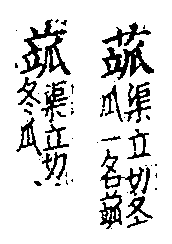 蓏渠立切冬
瓜一名蓏
蓏渠立切
冬瓜